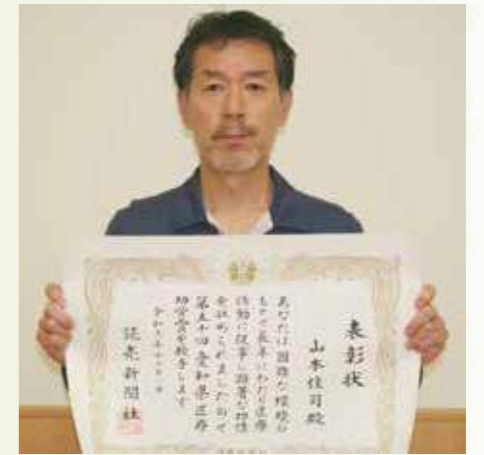 表彰状
山本佳司殿
あなたは困難な環境の
もとで長年にわたり医療
活動に従事し顕著な功績
を収められましたので
第五十回愛知県医療
功労賞を授与します
読売新聞社